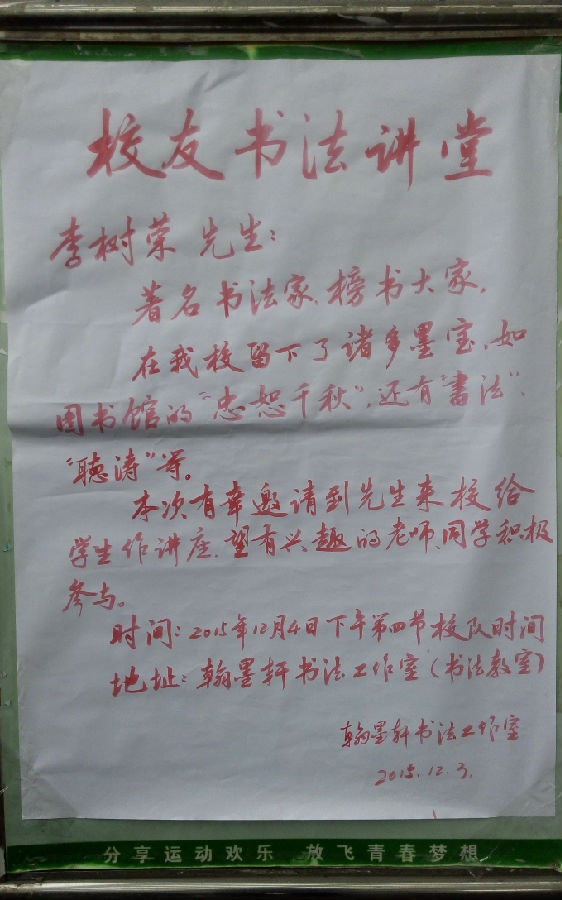 校友书法讲堂
李树荣 先生：
著名书法家、榜书大家。
在我校留下了诸多墨宝，如
图书馆的“忠恕千秋”，还有“書法”、
“聽涛”等。
本次有幸邀请到先生来校给
学生作讲座，望有兴趣的老师、同学积极
参与。
时间：2015年12月4日下午第四节校队时间
地址：翰墨轩书法工作室（书法教室）
翰墨轩书法工作室
2015.12.3.
分享运动欢乐 放飞青春梦想